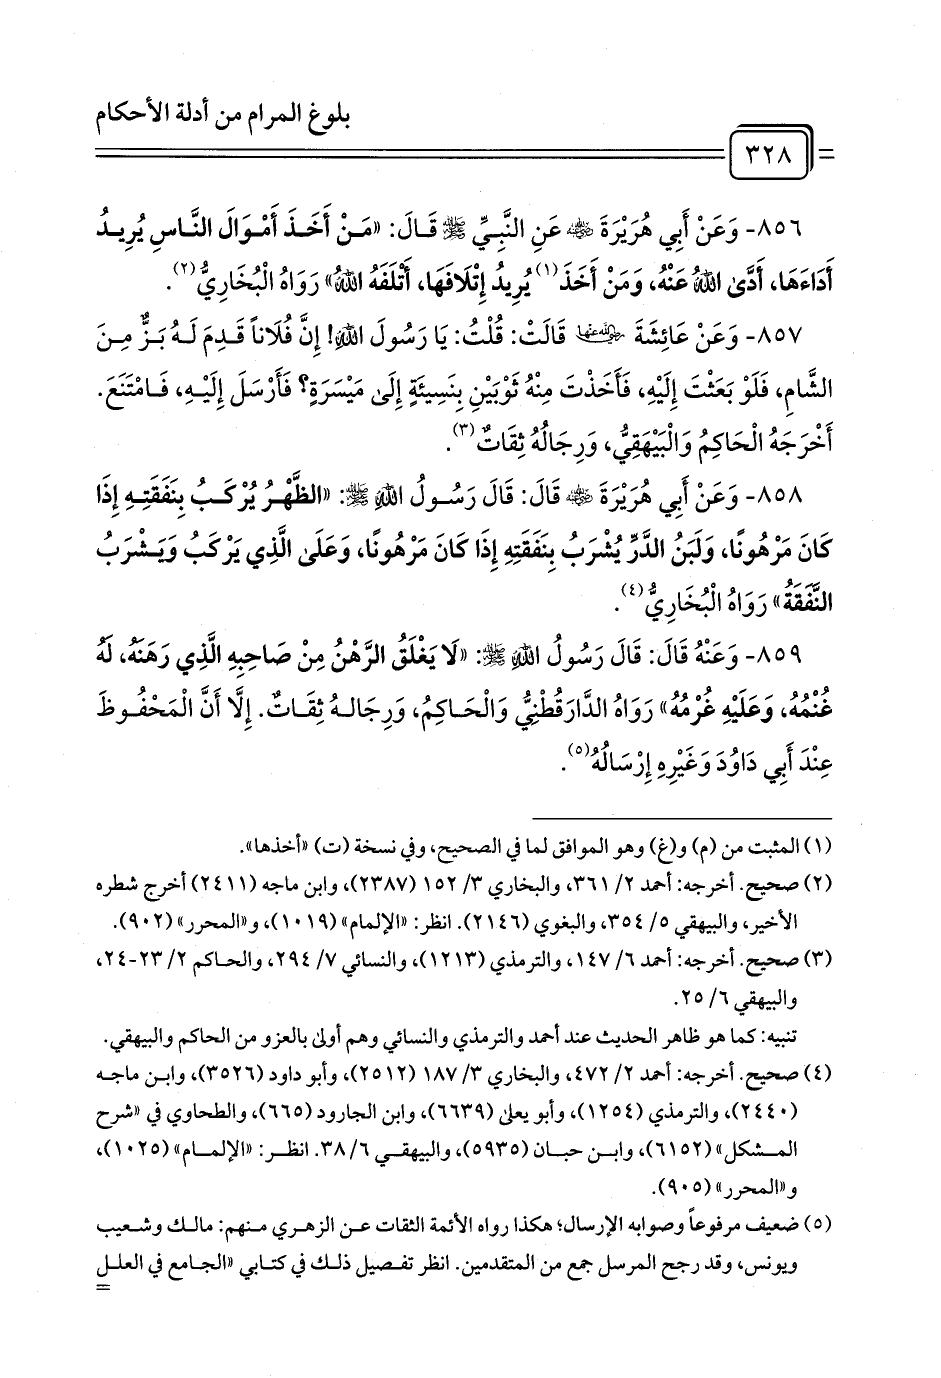 بلوغ المرام من أدلة الأحكام
٣٢٨
٨٥٦- وَعَنْ أَبِي هُرَيْرَةَ ﵁ عَنِ النَّبِيِّ ﷺ قَالَ: «مَنْ أَخَذَ أَمْوَالَ النَّاسِ يُرِيدُ
أَدَاءَهَا، أَدَّىٰ اللهُ عَنْهُ، وَمَنْ أَخَذَ(١) يُرِيدُ إِتْلَافَهَا، أَتْلَفَهُ اللهُ» رَوَاهُ الْبُخَارِيُّ(٢).
٨٥٧- وَعَنْ عَائِشَةَ ﵂ قَالَتْ: قُلْتُ: يَا رَسُولَ اللهِ! إِنَّ فُلَاناً قَدِمَ لَهُ بَزٌّ مِنَ
الشَّامِ، فَلَوْ بَعَثْتَ إِلَيْهِ، فَأَخَذْتَ مِنْهُ ثَوْبَيْنِ بِنَسِيئَةٍ إِلَىٰ مَيْسَرَةٍ؟ فَأَرْسَلَ إِلَيْهِ، فَامْتَنَعَ.
أَخْرَجَهُ الْحَاكِمُ وَالْبَيْهَقِيُّ، وَرِجَالُهُ ثِقَاتٌ(٣).
٨٥٨- وَعَنْ أَبِي هُرَيْرَةَ ﵁ قَالَ: قَالَ رَسُولُ اللهِ ﷺ: «الظَّهْرُ يُرْكَبُ بِنَفَقَتِهِ إِذَا
كَانَ مَرْهُونًا، وَلَبَنُ الدَّرِّ يُشْرَبُ بِنَفَقَتِهِ إِذَا كَانَ مَرْهُونًا، وَعَلَىٰ الَّذِي يَرْكَبُ وَيَشْرَبُ
النَّفَقَةُ» رَوَاهُ الْبُخَارِيُّ(٤).
٨٥٩- وَعَنْهُ قَالَ: قَالَ رَسُولُ اللهِ ﷺ: «لَا يَغْلَقُ الرَّهْنُ مِنْ صَاحِبِهِ الَّذِي رَهَنَهُ، لَهُ
غُنْمُهُ، وَعَلَيْهِ غُرْمُهُ» رَوَاهُ الدَّارَقُطْنِيُّ وَالْحَاكِمُ، وَرِجَالهُ ثِقَاتٌ. إِلَّا أَنَّ الْمَحْفُوظَ
عِنْدَ أَبِي دَاوُدَ وَغَيْرِهِ إِرْسَالُهُ(٥).
(١) المثبت من (م) و(غ) وهو الموافق لما في الصحيح، وفي نسخة (ت) «أخذها».
(٢) صحيح. أخرجه: أحمد ٢/ ٣٦١، والبخاري ٣/ ١٥٢ (٢٣٨٧)، وابن ماجه (٢٤١١) أخرج شطره
الأخير، والبيهقي ٥/ ٣٥٤، والبغوي (٢١٤٦). انظر: «الإلمام» (١٠١٩)، و«المحرر» (٩٠٢).
(٣) صحيح. أخرجه: أحمد ٦/ ١٤٧، والترمذي (١٢١٣)، والنسائي ٧/ ٢٩٤، والحاكم ٢/ ٢٣-٢٤،
والبيهقي ٦/ ٢٥.
تنبيه: كما هو ظاهر الحديث عند أحمد والترمذي والنسائي وهم أولىٰ بالعزو من الحاكم والبيهقي.
(٤) صحيح. أخرجه: أحمد ٢/ ٤٧٢، والبخاري ٣/ ١٨٧ (٢٥١٢)، وأبو داود (٣٥٢٦)، وابن ماجه
(٢٤٤٠)، والترمذي (١٢٥٤)، وأبو يعلىٰ (٦٦٣٩)، وابن الجارود (٦٦٥)، والطحاوي في «شرح
المشكل» (٦١٥٢)، وابن حبان (٥٩٣٥)، والبيهقي ٦/ ٣٨. انظر: «الإلمام» (١٠٢٥)،
و«المحرر» (٩٠٥).
(٥) ضعيف مرفوعاً وصوابه الإرسال؛ هكذا رواه الأئمة الثقات عن الزهري منهم: مالك وشعيب
ويونس، وقد رجح المرسل جمع من المتقدمين. انظر تفصيل ذلك في كتابي «الجامع في العلل
=